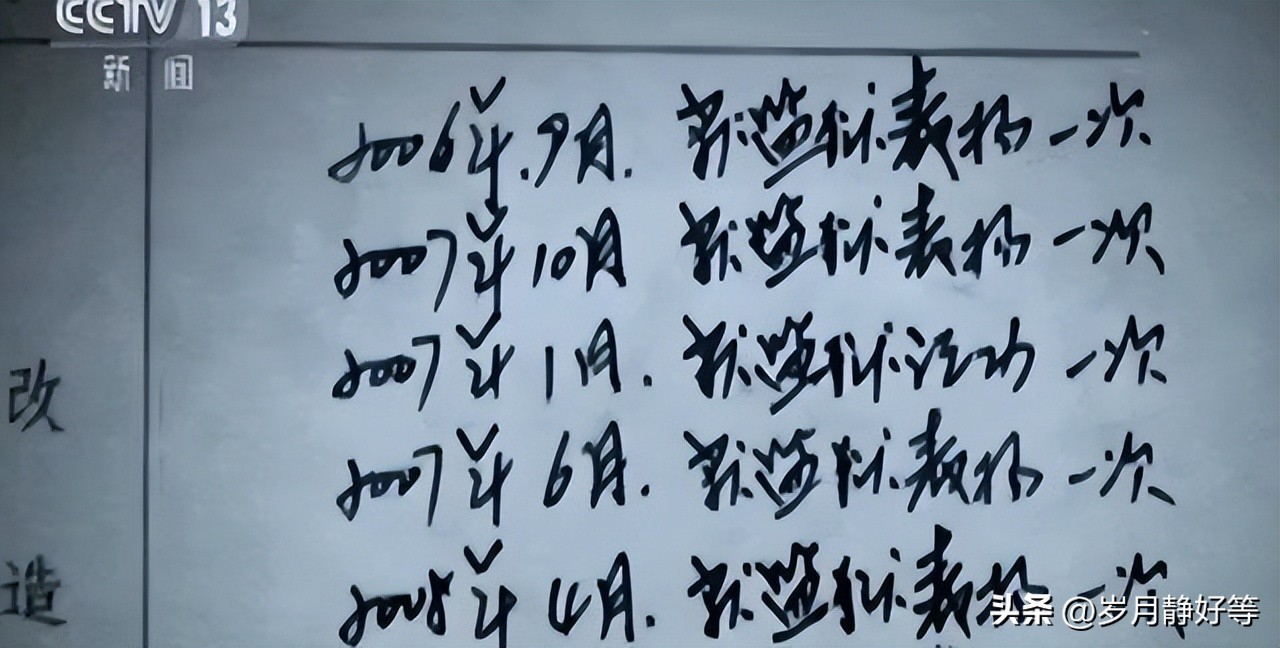 CCTV 13
新闻
2006年.9月. 获监狱表扬一次
2007年10月 获监狱表扬一次
2007年1月. 获监狱记功一次
2007年6月. 获监狱表扬一次
2008年4月. 获监狱表扬一次
改
造
头条 @岁月静好等